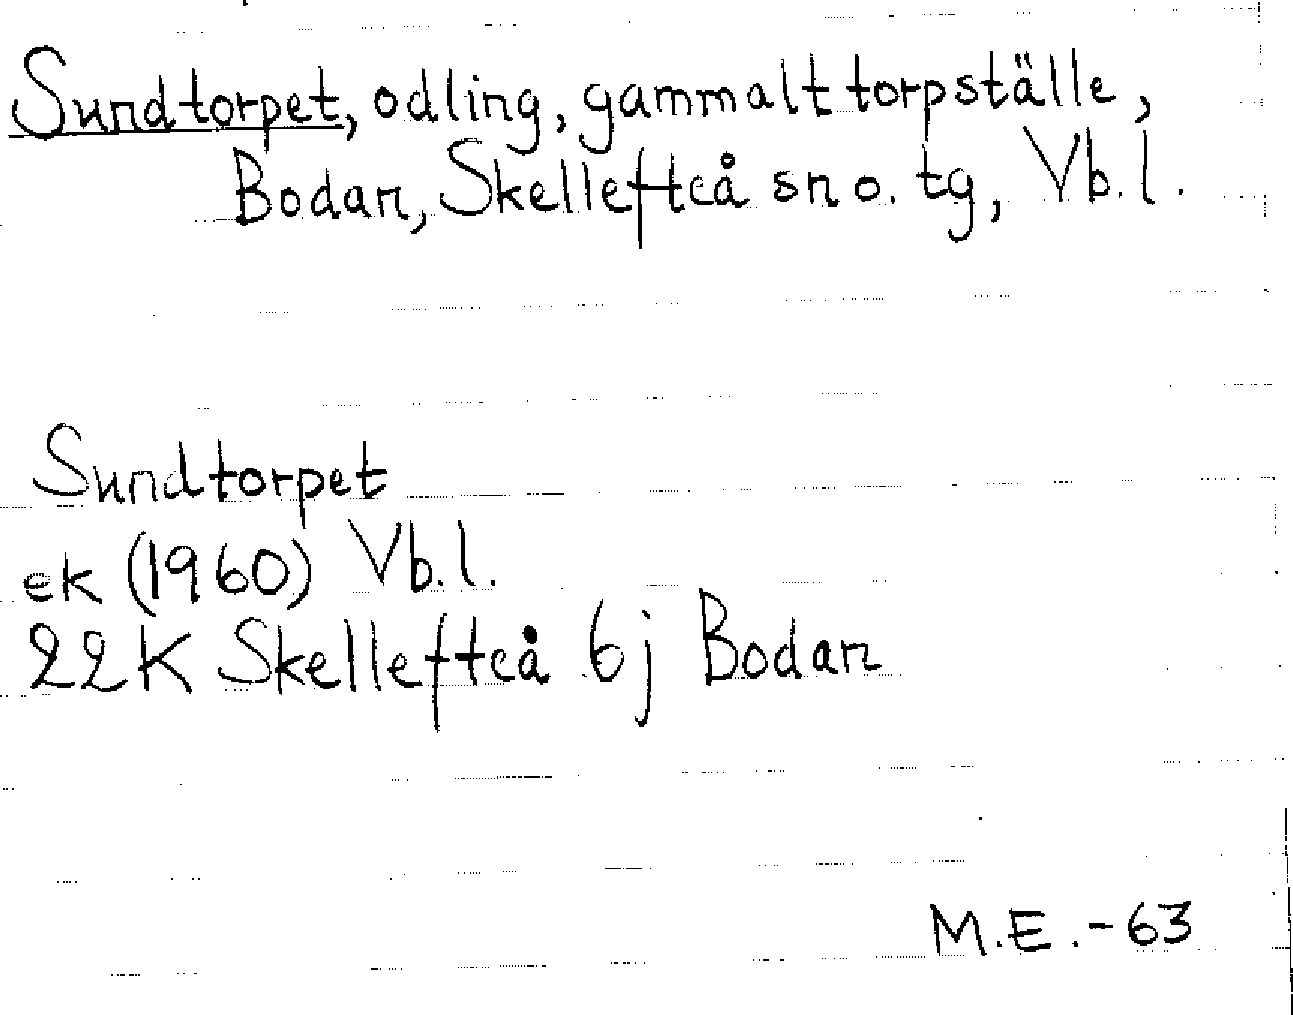 Sundtorpet, odling, gammalt torpställe,
Bodan, Skellefteå sn o. tg, Vb. l.
Sundtorpet
ek (1960) Vb. l.
22K Skellefteå 6j Bodan
M.E.-63